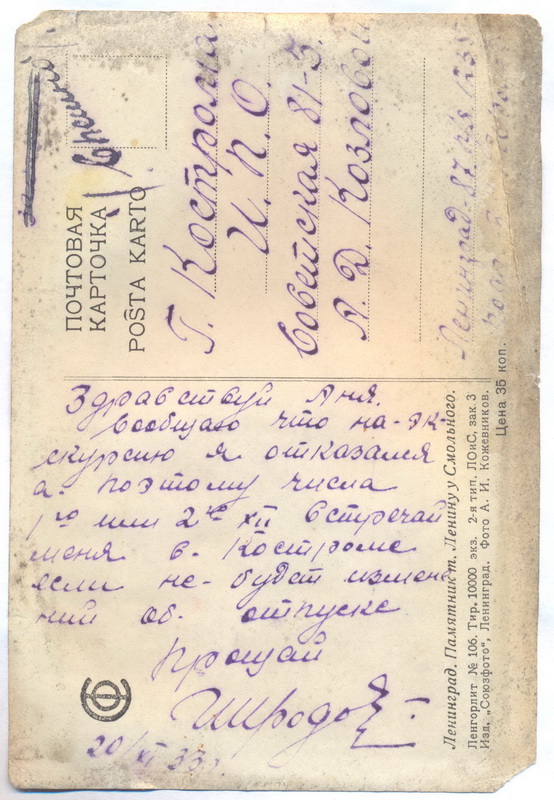 ПОЧТОВАЯ
КАРТОЧКА
POŜTA KARTO
Г. Кострома
И. П. О.
Советская 81-5.
А. Д. Козловой
Ленинград-87
Здравствуй Аня.
Сообщаю что на-эк-
скурсию я отказался
а. поэтому числа
1го или 2го XII встречай
меня в. Костроме
если не-будет измене
ний об. отпуске
Прощай
20/XI 33г.
Ленинград. Памятник т. Ленину у Смольного.
Ленгорлит № 106. Тир. 10000 экз. 2-я тип. ЛОиС, зак. 3
Изд. „Союзфото", Ленинград. Фото А. И. Кожевников.
Цена 35 коп.